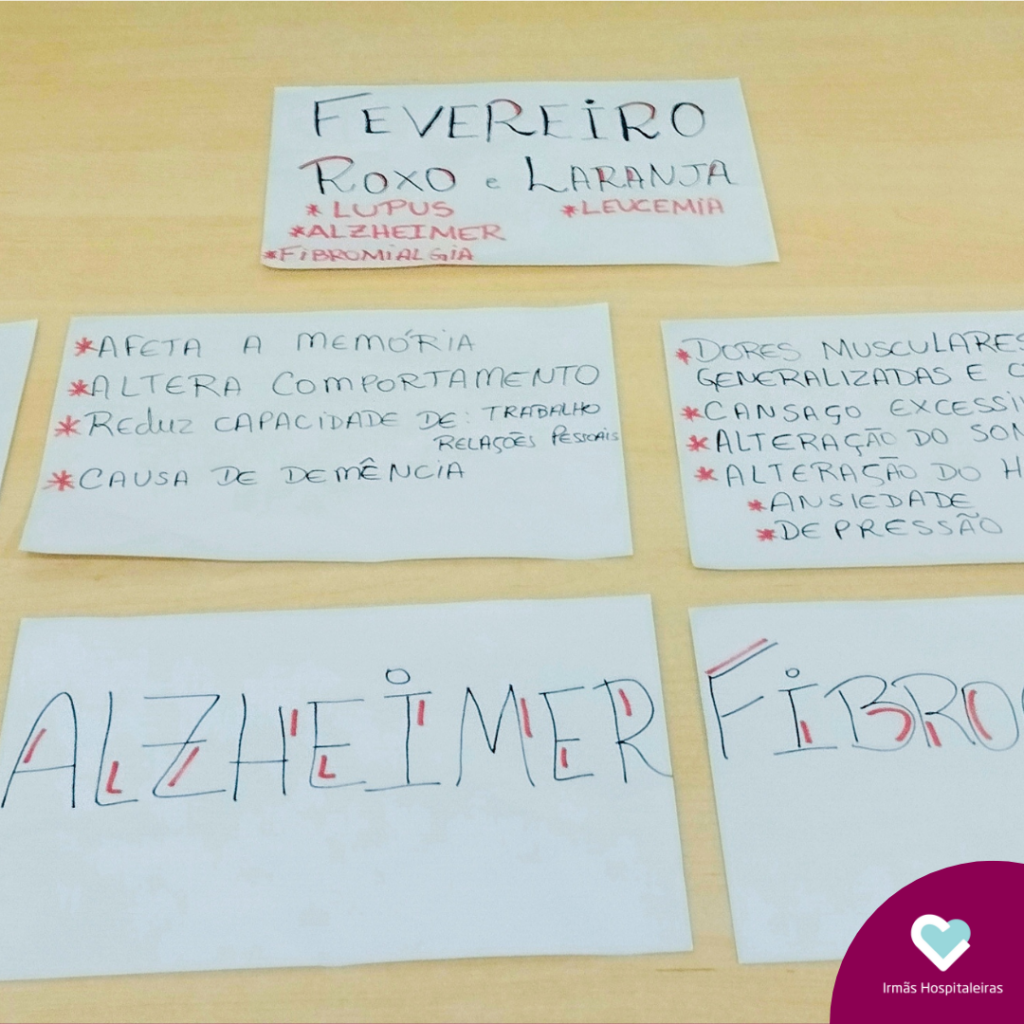 FEVEREIRO
ROXO e LARANJA
*LUPUS *LEUCEMIA
*ALZHEIMER
*FIBROMIALGIA
*AFETA A MEMÓRIA
*ALTERA COMPORTAMENTO
*REDUZ CAPACIDADE DE: TRABALHO
RELAÇÕES PESSOAIS
*CAUSA DE DEMÊNCIA
*DORES MUSCULARES
GENERALIZADAS E
*CANSAÇO
*ALTERAÇÃO DO
*ALTERAÇÃO DO
*ANSIEDADE
*DEPRESSÃO
ALZHEIMER
Irmãs Hospitaleiras